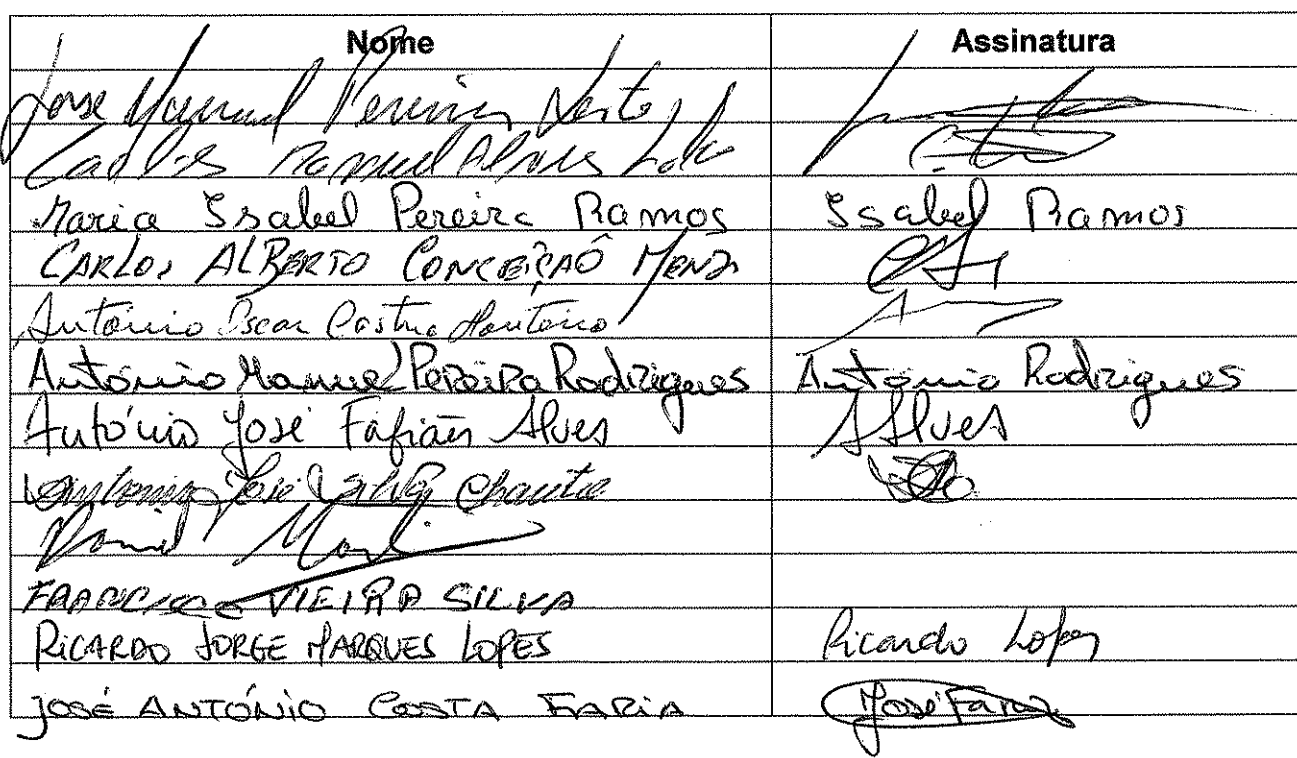 Nome Assinatura
José Manuel Pereira
Carlos Manuel Alves
Maria Isabel Pereira Ramos Isabel Ramos
CARLOS ALBERTO CONCEIÇÃO
António Oscar Castro
António Manuel Pereira Rodrigues António Rodrigues
António José Fafiães Alves AAlves
António José Silva
Daniel
FRANCISCO VIEIRA SILVA
RICARDO JORGE MARQUES LOPES Ricardo Lopes
JOSÉ ANTÓNIO COSTA FARIA José Faria